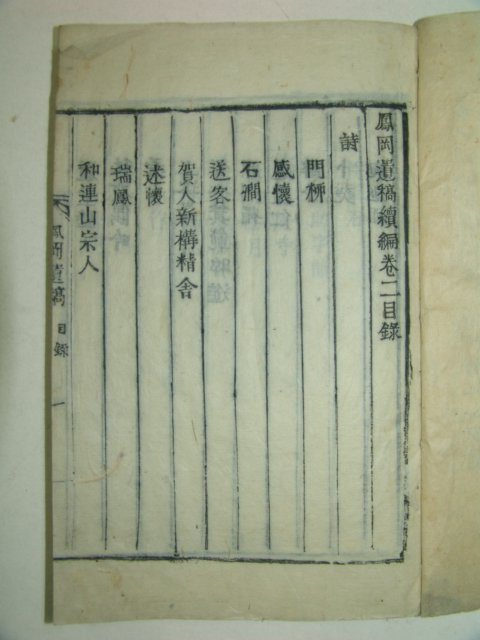 鳳岡遺稿續編卷二目錄
詩
門柳
感懷
石澗
送客
賀人新構精舍
述懷
瑞鳳
和連山宗人
鳳岡遺稿 目錄 一